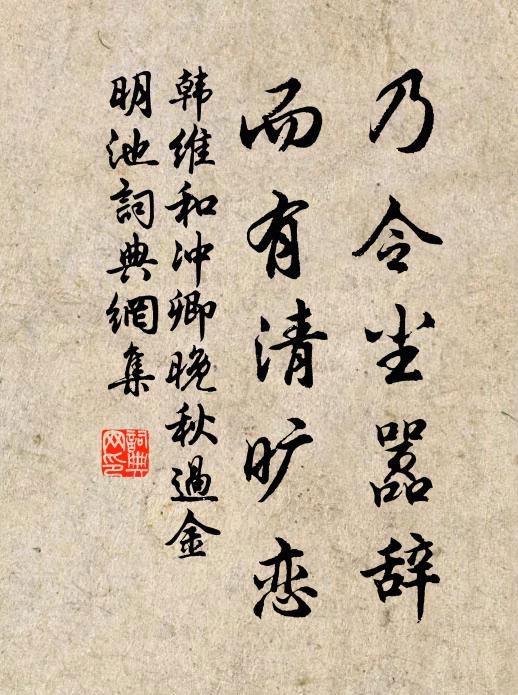 乃令尘嚣辞
而有清旷恋
韩维和冲卿晚秋過金
明池詞典網集
詞典
网印